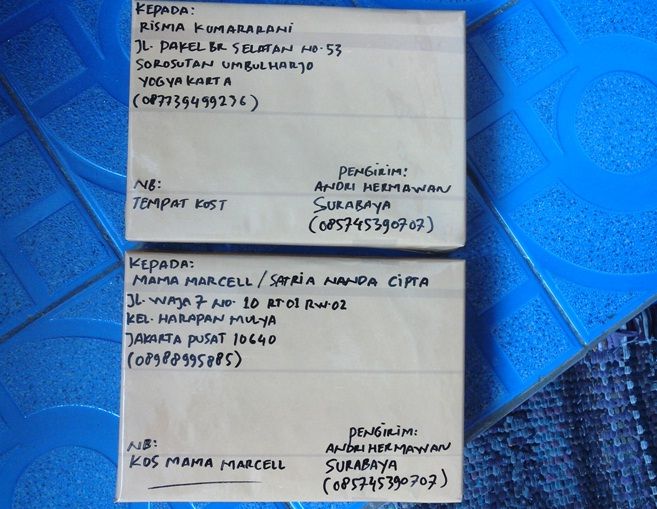 KEPADA:
RISMA KUMARARANI
JL. PAKEL BR SELATAN NO. 53
SOROSUTAN UMBULHARJO
YOGYAKARTA
(087739499236)
NB:
TEMPAT KOST
PENGIRIM:
ANDRI HERMAWAN
SURABAYA
(085745390707)
KEPADA:
MAMA MARCELL / SATRIA NANDA CIPTA
JL. WAJA 7 NO. 10 RT 01 RW. 02
KEL. HARAPAN MULYA
JAKARTA PUSAT 10640
(08988995885)
NB:
KOS MAMA MARCELL
PENGIRIM:
ANDRI HERMAWAN
SURABAYA
(085745390707)